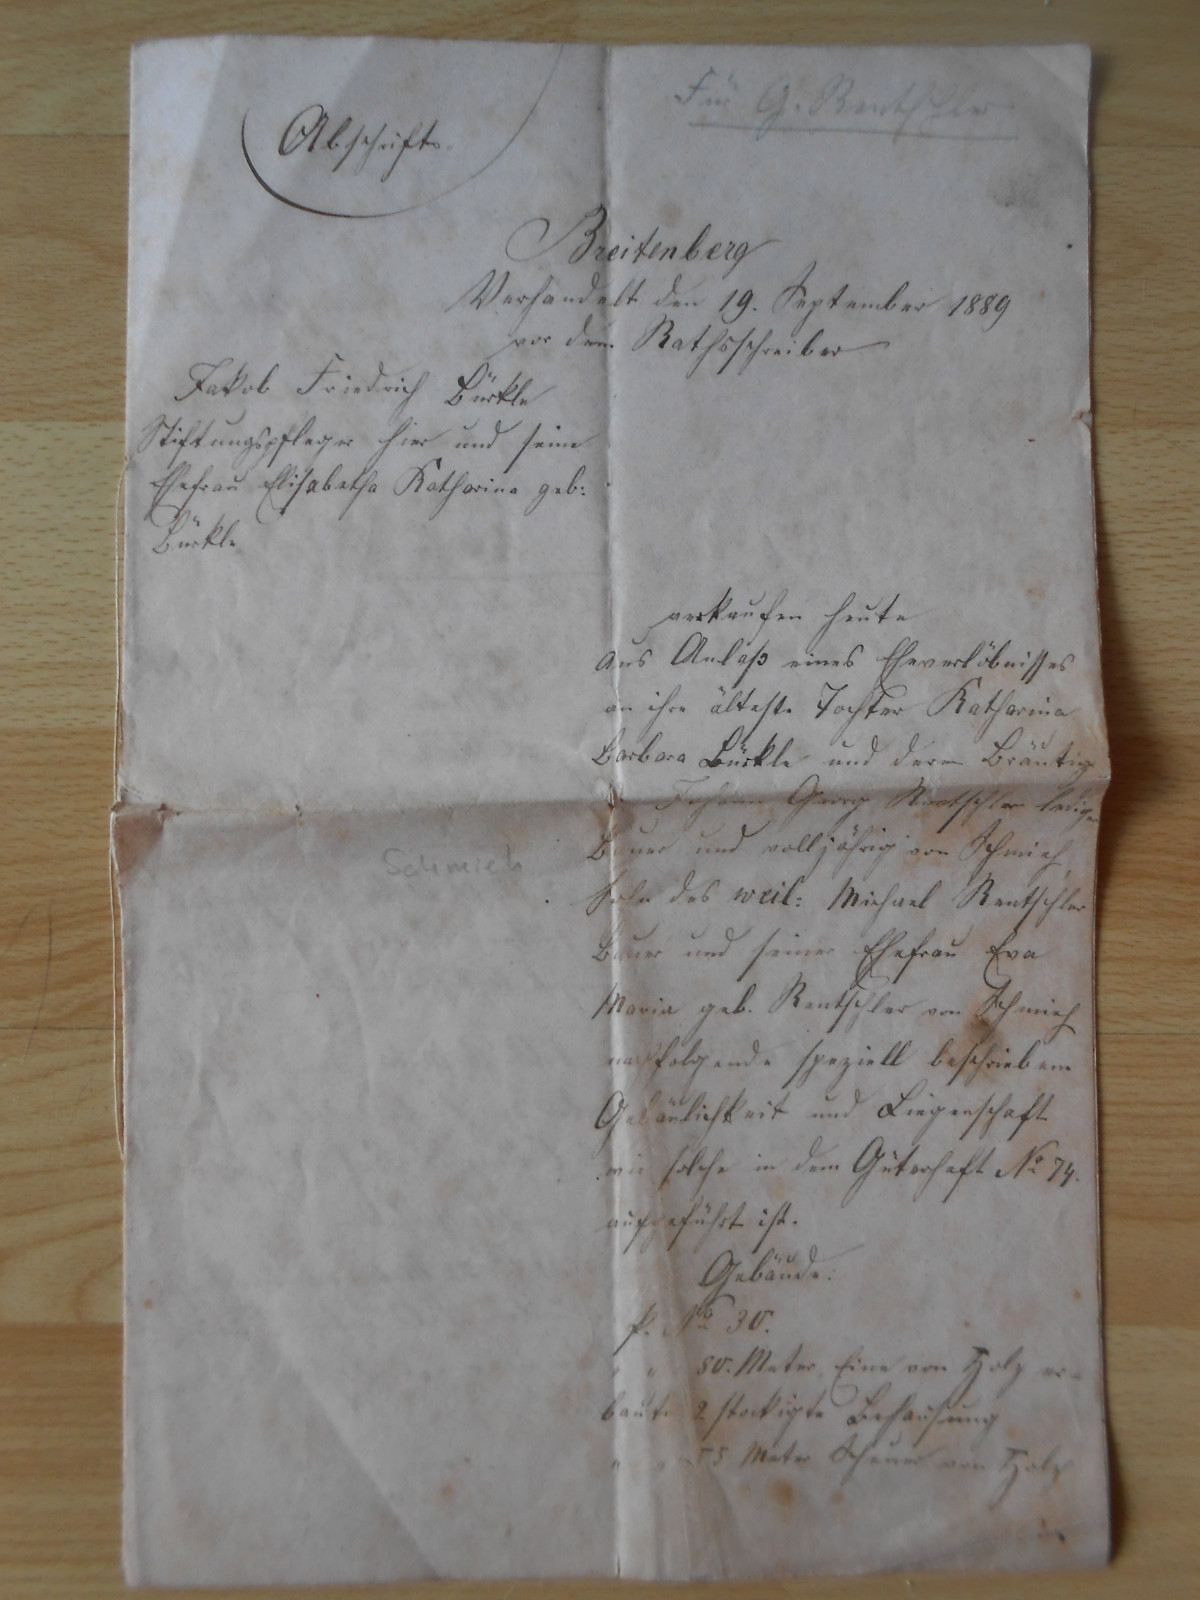 Für G. Rentschler
Abschrift.
Breitenberg
Verhandelt den 19. September 1889
vor dem Rathsschreiber
Jakob Friedrich Bürkle
Stiftungspfleger hier und seine
Ehefrau Elisabetha Katharina geb:
Bürkle
verkaufen heute
aus Anlaß eines Eheverlöbnisses
an ihre älteste Tochter Katharina
Barbara Bürkle und deren Bräutig
Johann Georg Rentschler ledige
Bauer und volljährig von Schmieh
Schmieh
Sohn des weil: Michael Rentschler
Bauer und seiner Ehefrau Eva
Maria geb. Rentschler von Schmieh
nachfolgende speziell beschriebene
Gebäulichkeit und Liegenschaft
wie solche in dem Güterheft No 74.
aufgeführt ist.
Gebäude:
P. No 30.
" " 80. Meter, Eine von Holz er-
baute 2 stockigte Behausung
" " 55 Meter Scheuer von Holz